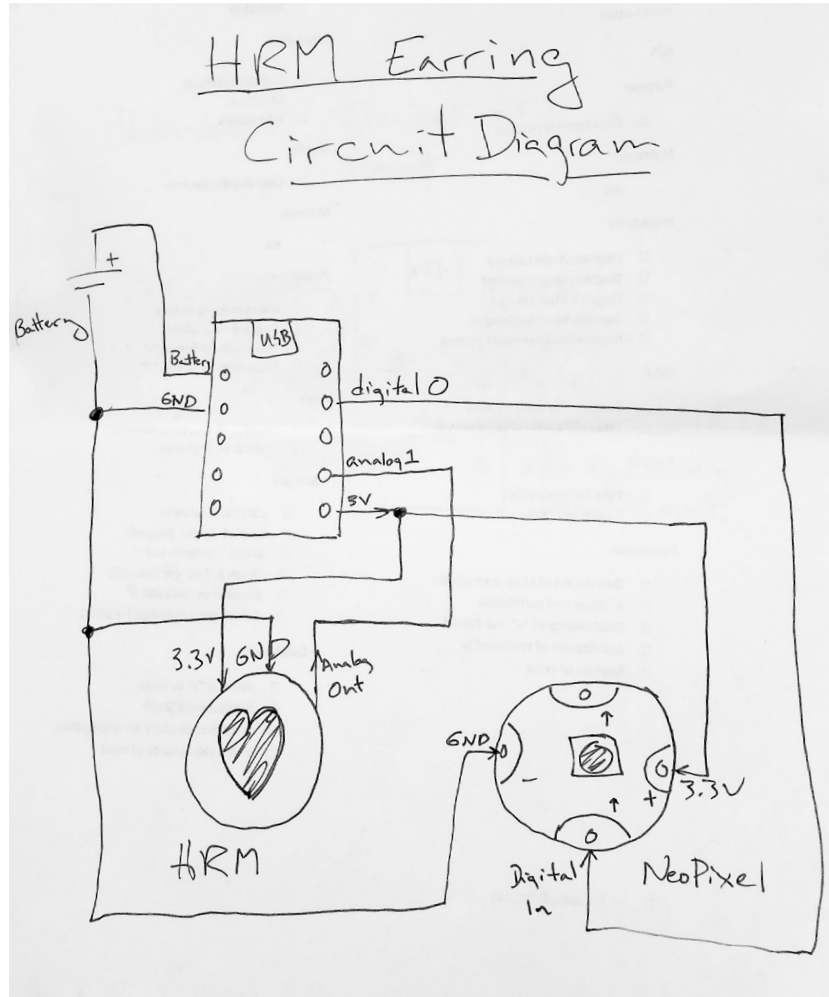 HRM Earring
Circuit Diagram
+
Battery
USB
Battery
GND
digital 0
analog 1
3V
3.3V
GND
Analog
Out
HRM
GND
-
+
3.3V
Digital
In
NeoPixel